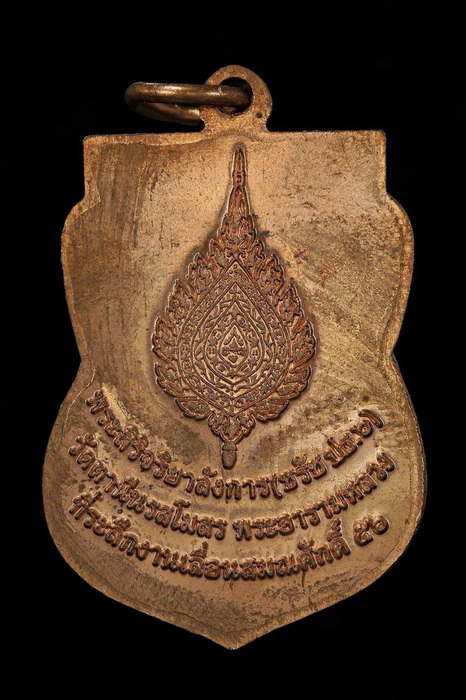 พระสิริจริยาลังการ(ชรัช ป.ธ.๖)
วัดท่านีมรสโมสร พระอารามหลวง
ที่ระลึกงานเลื่อนสมณศักดิ์ ๕๖